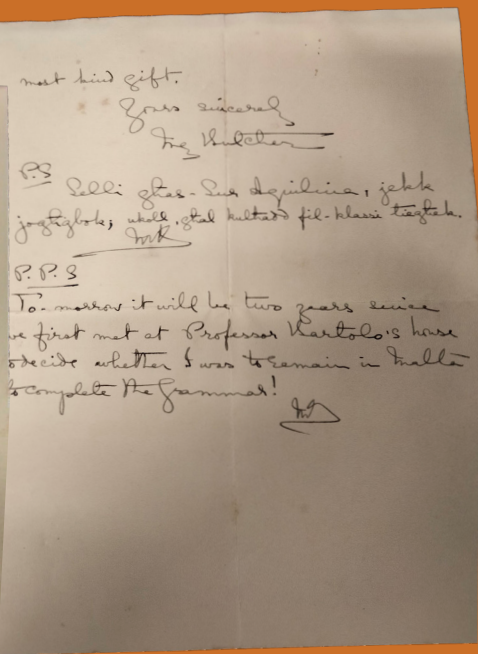 most kind gift.
Yours sincerely
May Butcher
P.S
Selli għas-Sur Aquilina, jekk
jogħġbok; ukoll, għal kulħadd fil-klassi tiegħek.
P.P.S
To-morrow it will be two years since
we first met at Professor Bartolo's house
to decide whether I was to remain in Malta
to complete the Grammar!